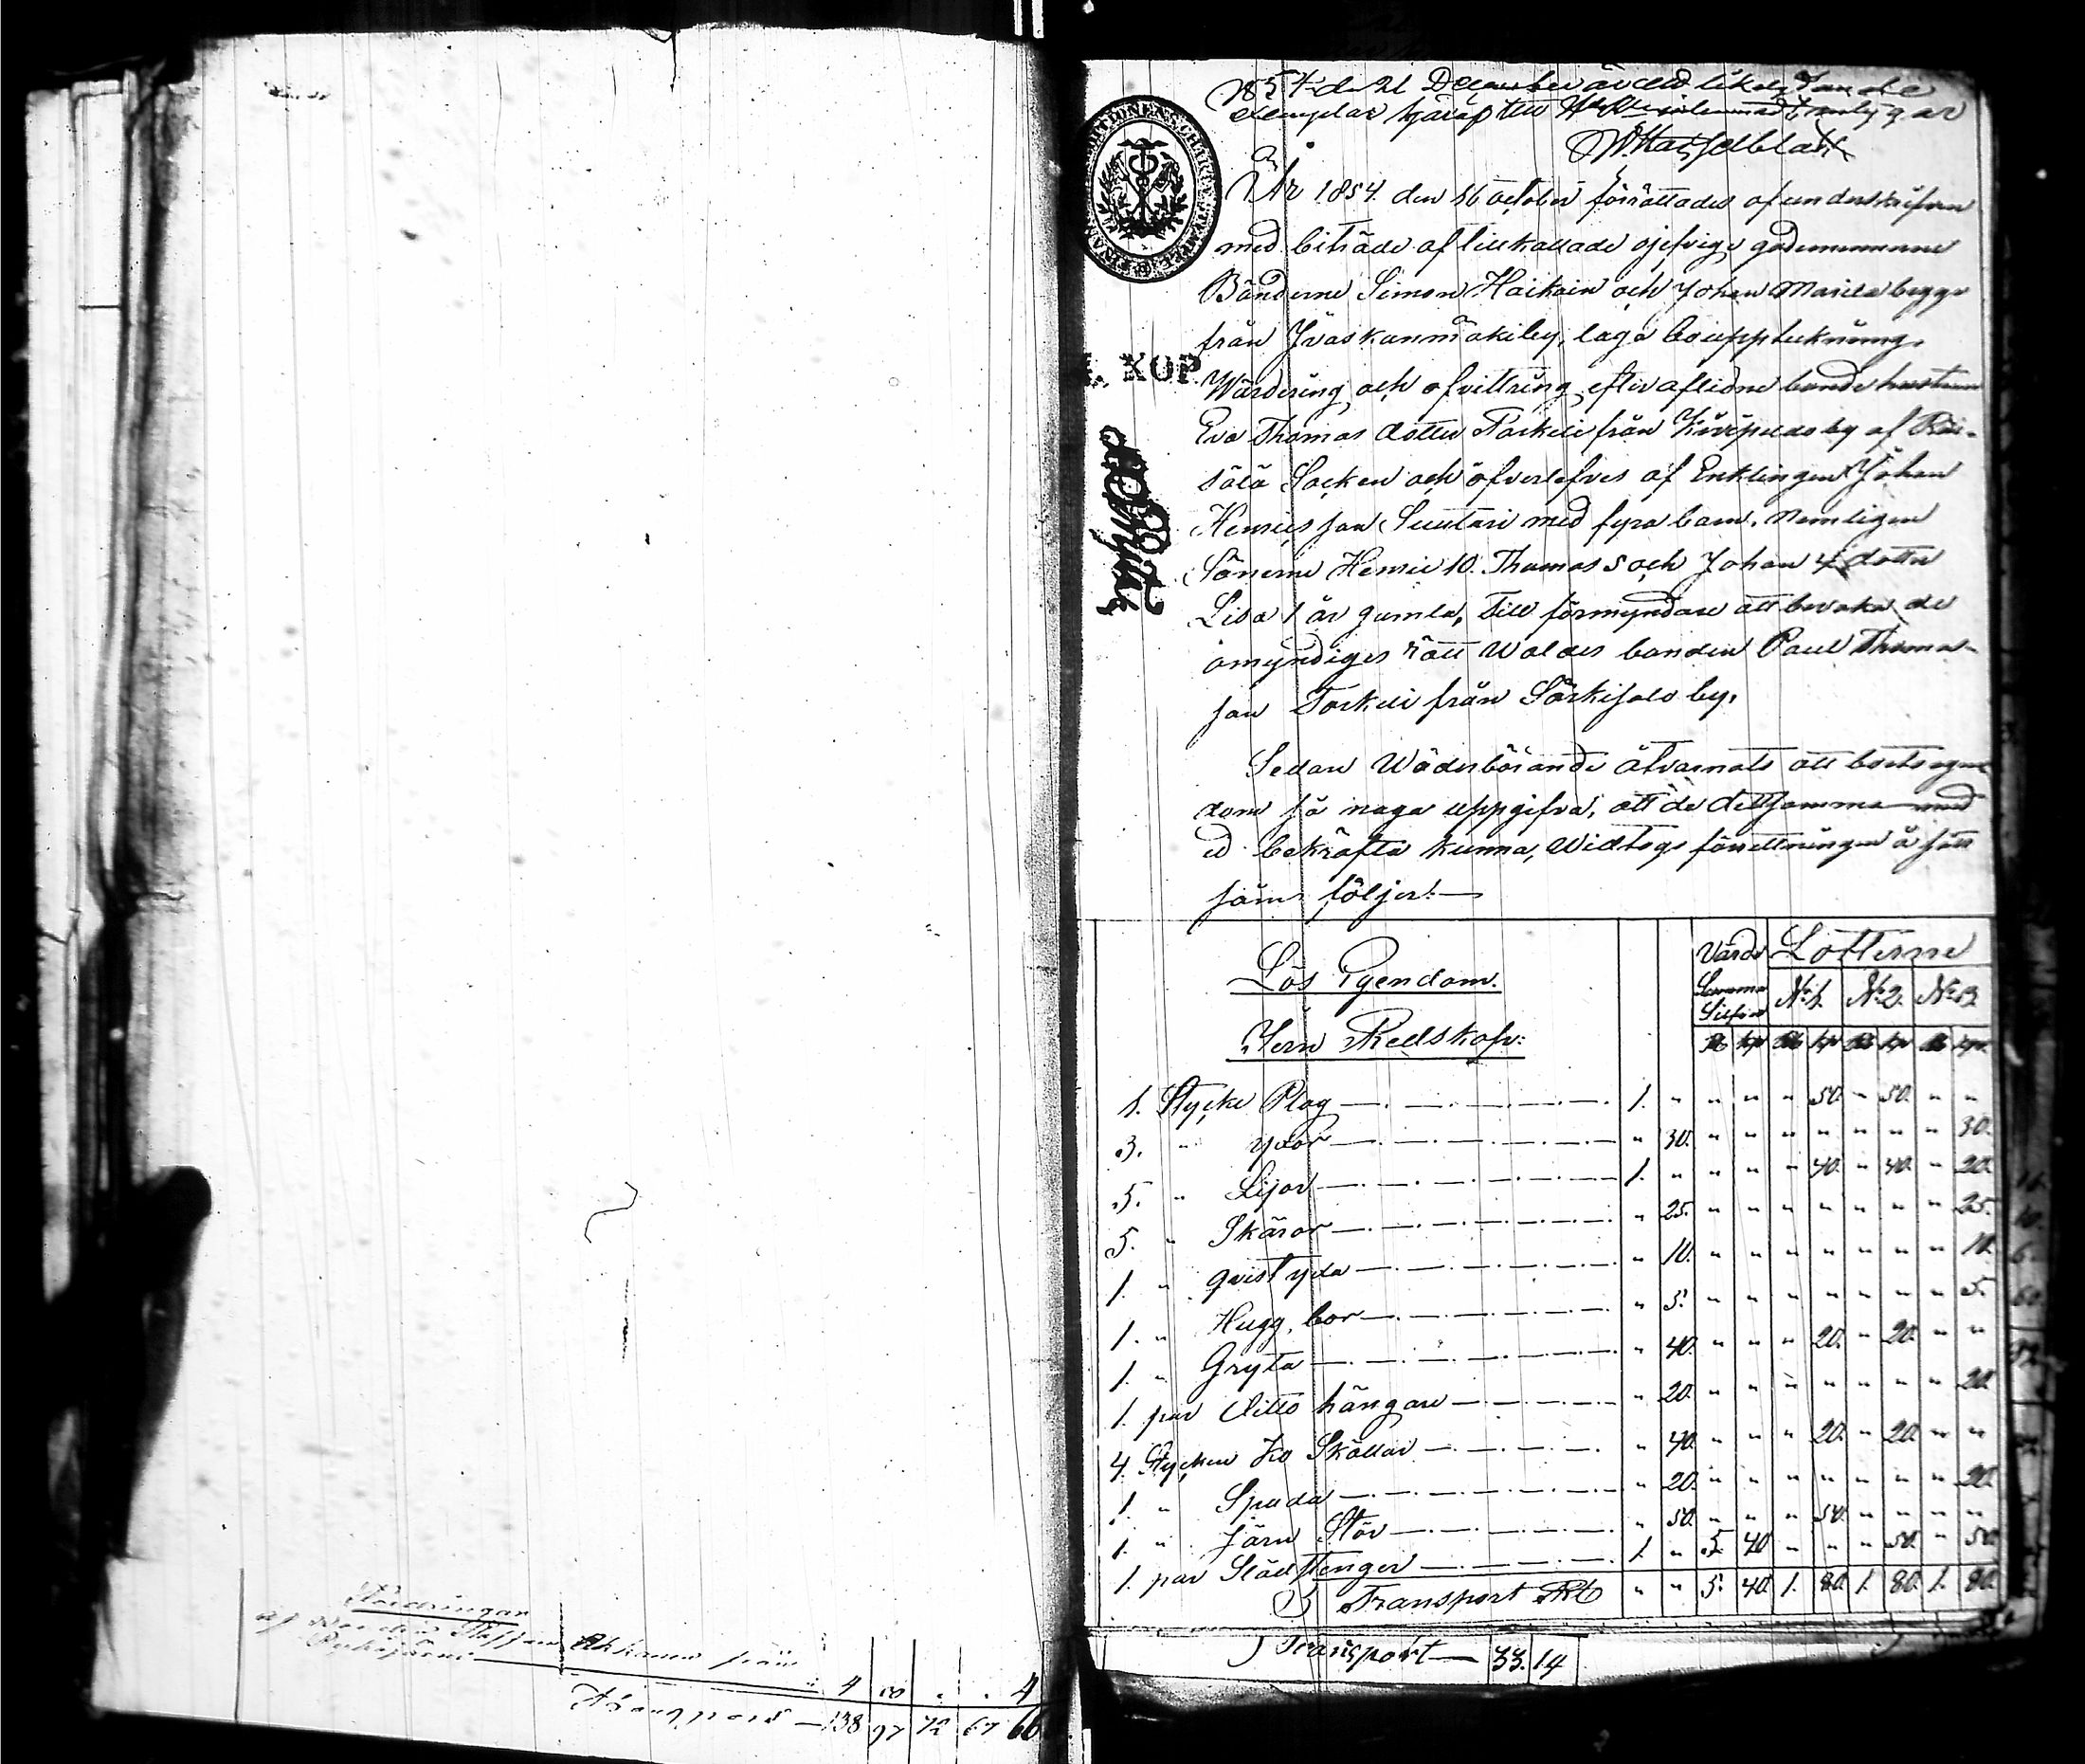 1854 den 21 December är ett lika lydande
exemplar häraf till
W. Hasselblatt
År 1854. den 16 october förrättades af undeskrifven
med biträde af tillkallade ojefvige godemennerne
Bönderne Simon Haikain och Johan Marila begge
från Ivaskanmäki by, laga bouppteckning.
KOP.
Wärdering och afvittring efter aflidne bonde hustrun
Eva Thomas dotter Torkeli från by af Räi-
sälä Socken och öfverlefves af Enklingen Johan
Henrics son Suutari med fyra barn, nemligen
Sönerne Henric 10. Thomas 5 och Johan 4 dotter
Lisa 1 år gamla, Till förmyndare att bevaka de
omyndiges rätt Waldes bonden Paul Thoma-
son Torkeli från Särkisalo by.
Sedan Wäderbörande åtvarnats att boets egen
dom så noga uppgifva, att de dettsamma med
ed bekräfta kunna, Widtogs förrettningen å sätt
som följer:
Lös Egendom.
Värde Lotterne
Summa Silfver No 1. No 2. No 3.
Jern Redskap:
Rb kp Rb kp Rb kp Rb kp.
1. Stycke Plog 1. " " " " 50. " 50. " "
3. " yxor " 30. " " " " " " " 30.
5. " Lijor 1. " " " " 40. " 40. " 20.
5. " Skäror " 25. " " " " " " " 25.
1. " qvist yxa " 10. " " " " " " " 10.
1. " Hugg bor " 5. " " " " " " " 5.
1. " Gryta " 40. " " " 20. " 20. " "
1. par ditto hängare " 20. " " " " " " " 20.
4. Stycken Ko Skällar " 40. " " " 20. " 20. " "
1. " Spada " 20. " " " " " " " 20.
1. " Järn Stör " 50. " " " 50. " " " "
1. par Slädstenger 1. " 5. 40 " " " 50. " 50
Transport Rb " " 5. 40. 1. 80. 1. 80. 1. 80.
Transport 33. 14
Fordringar
af
4 00 . . 4
Transport 138 97 72 67 66